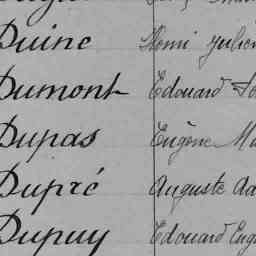 Duine Henri Julien
Dumont Edouard
Dupas Eugène
Dupré Auguste
Dupuy Edouard